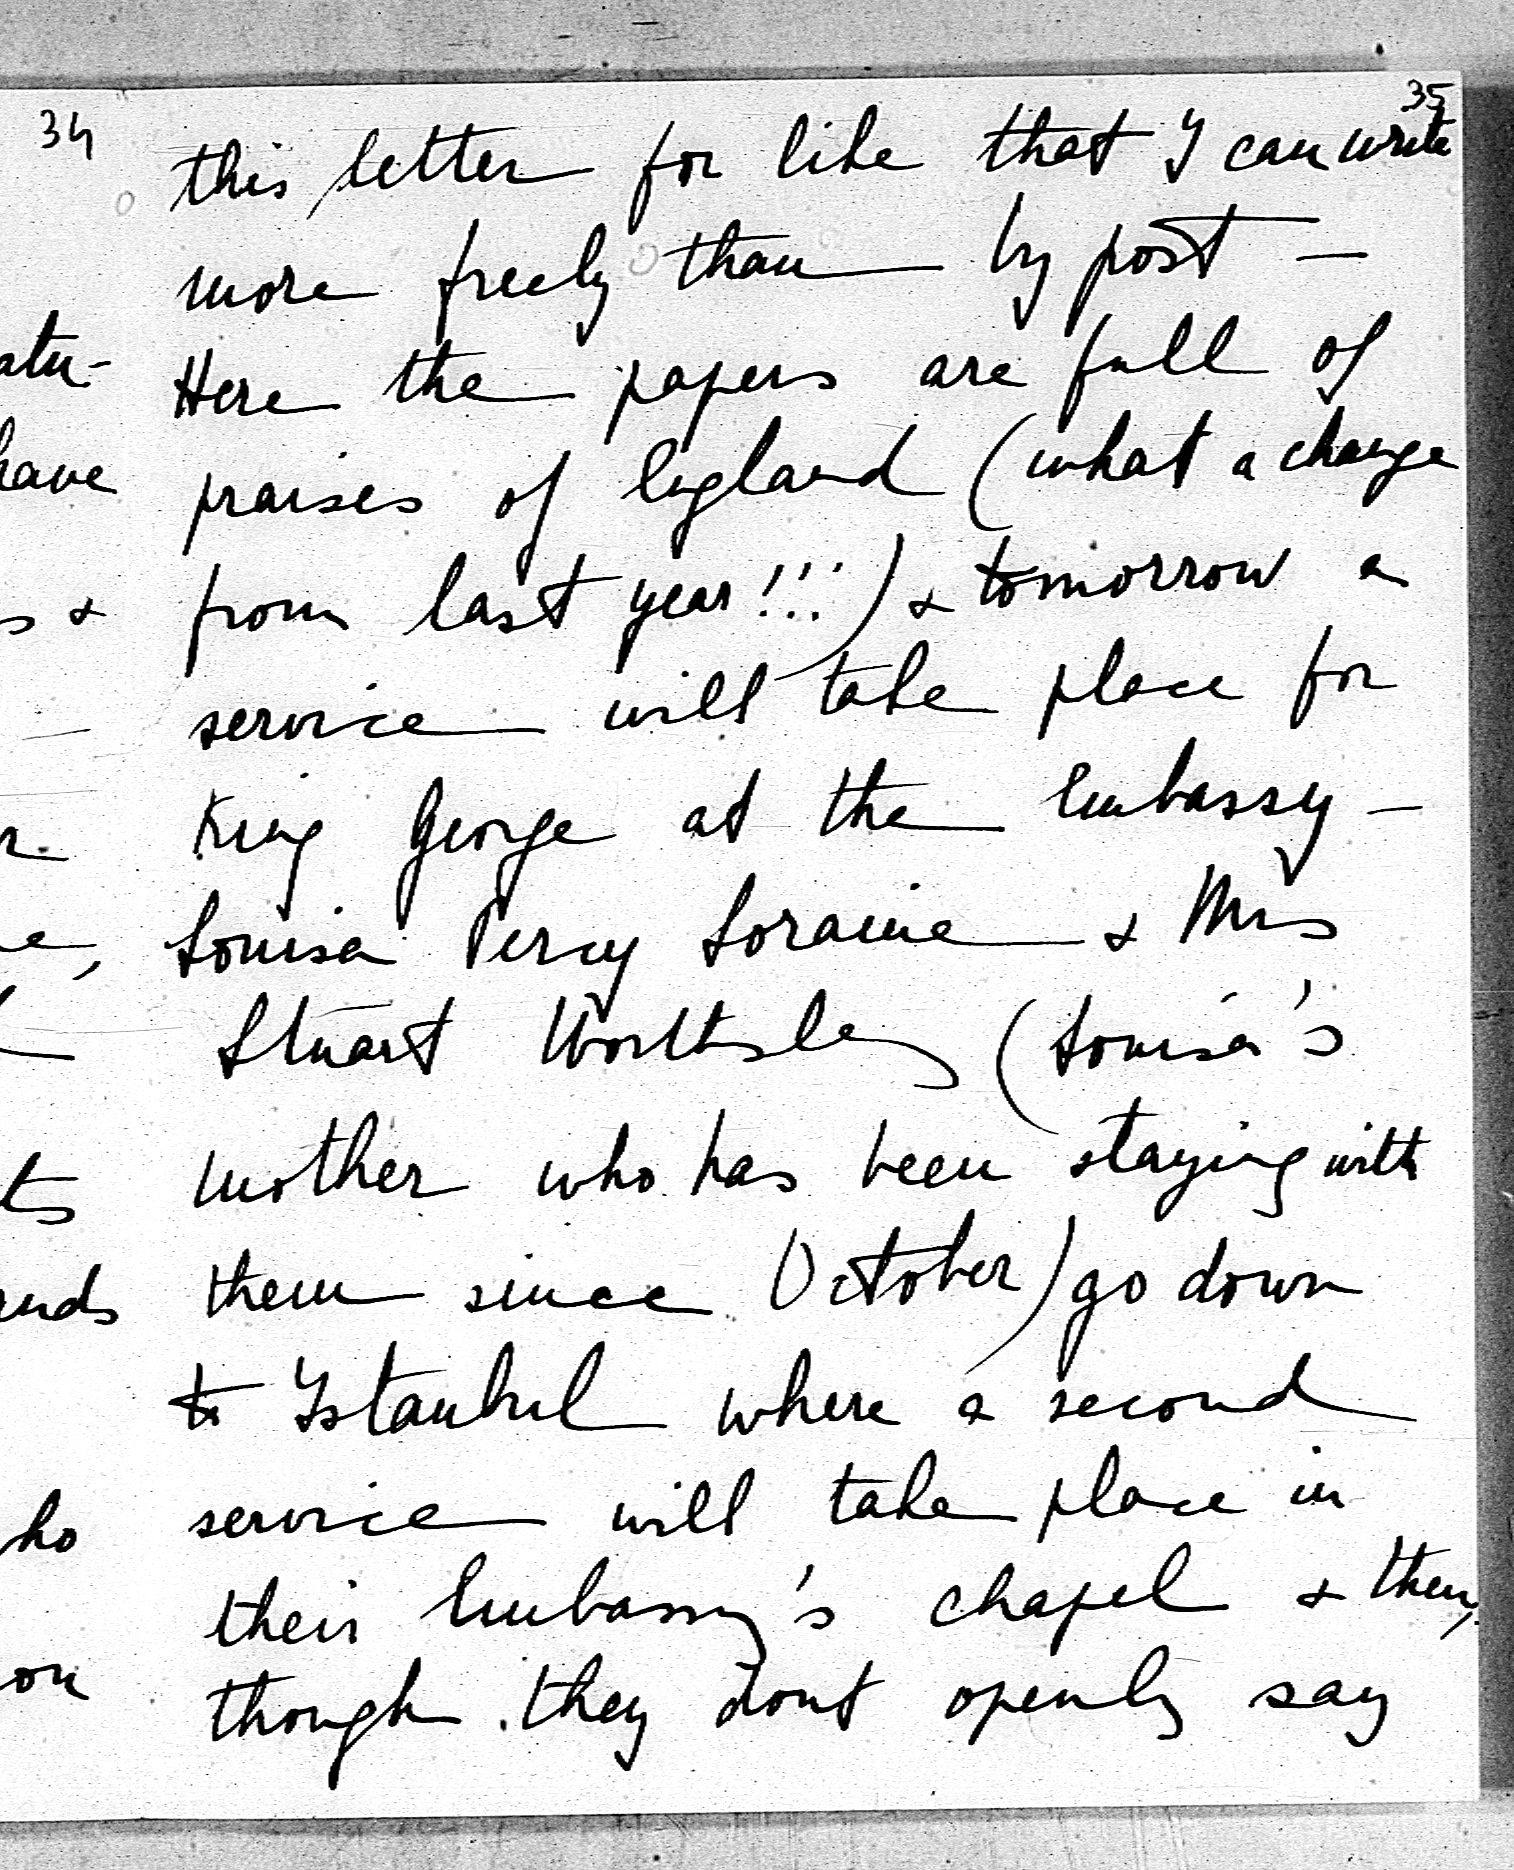 34
35
this letter for like that I can write
more freely than by post —
Here the papers are full of
praises of England (what a change
from last year!!!) & tomorrow a
service will take place for
King George at the Embassy —
Louisa Percy Loraine & Mrs
Stuart Worthsley (Louisa's
mother who has been staying with
them since October) go down
to Istanbul where a second
service will take place in
their Embassy's chapel & then,
though they dont openly say
have
s &
ts